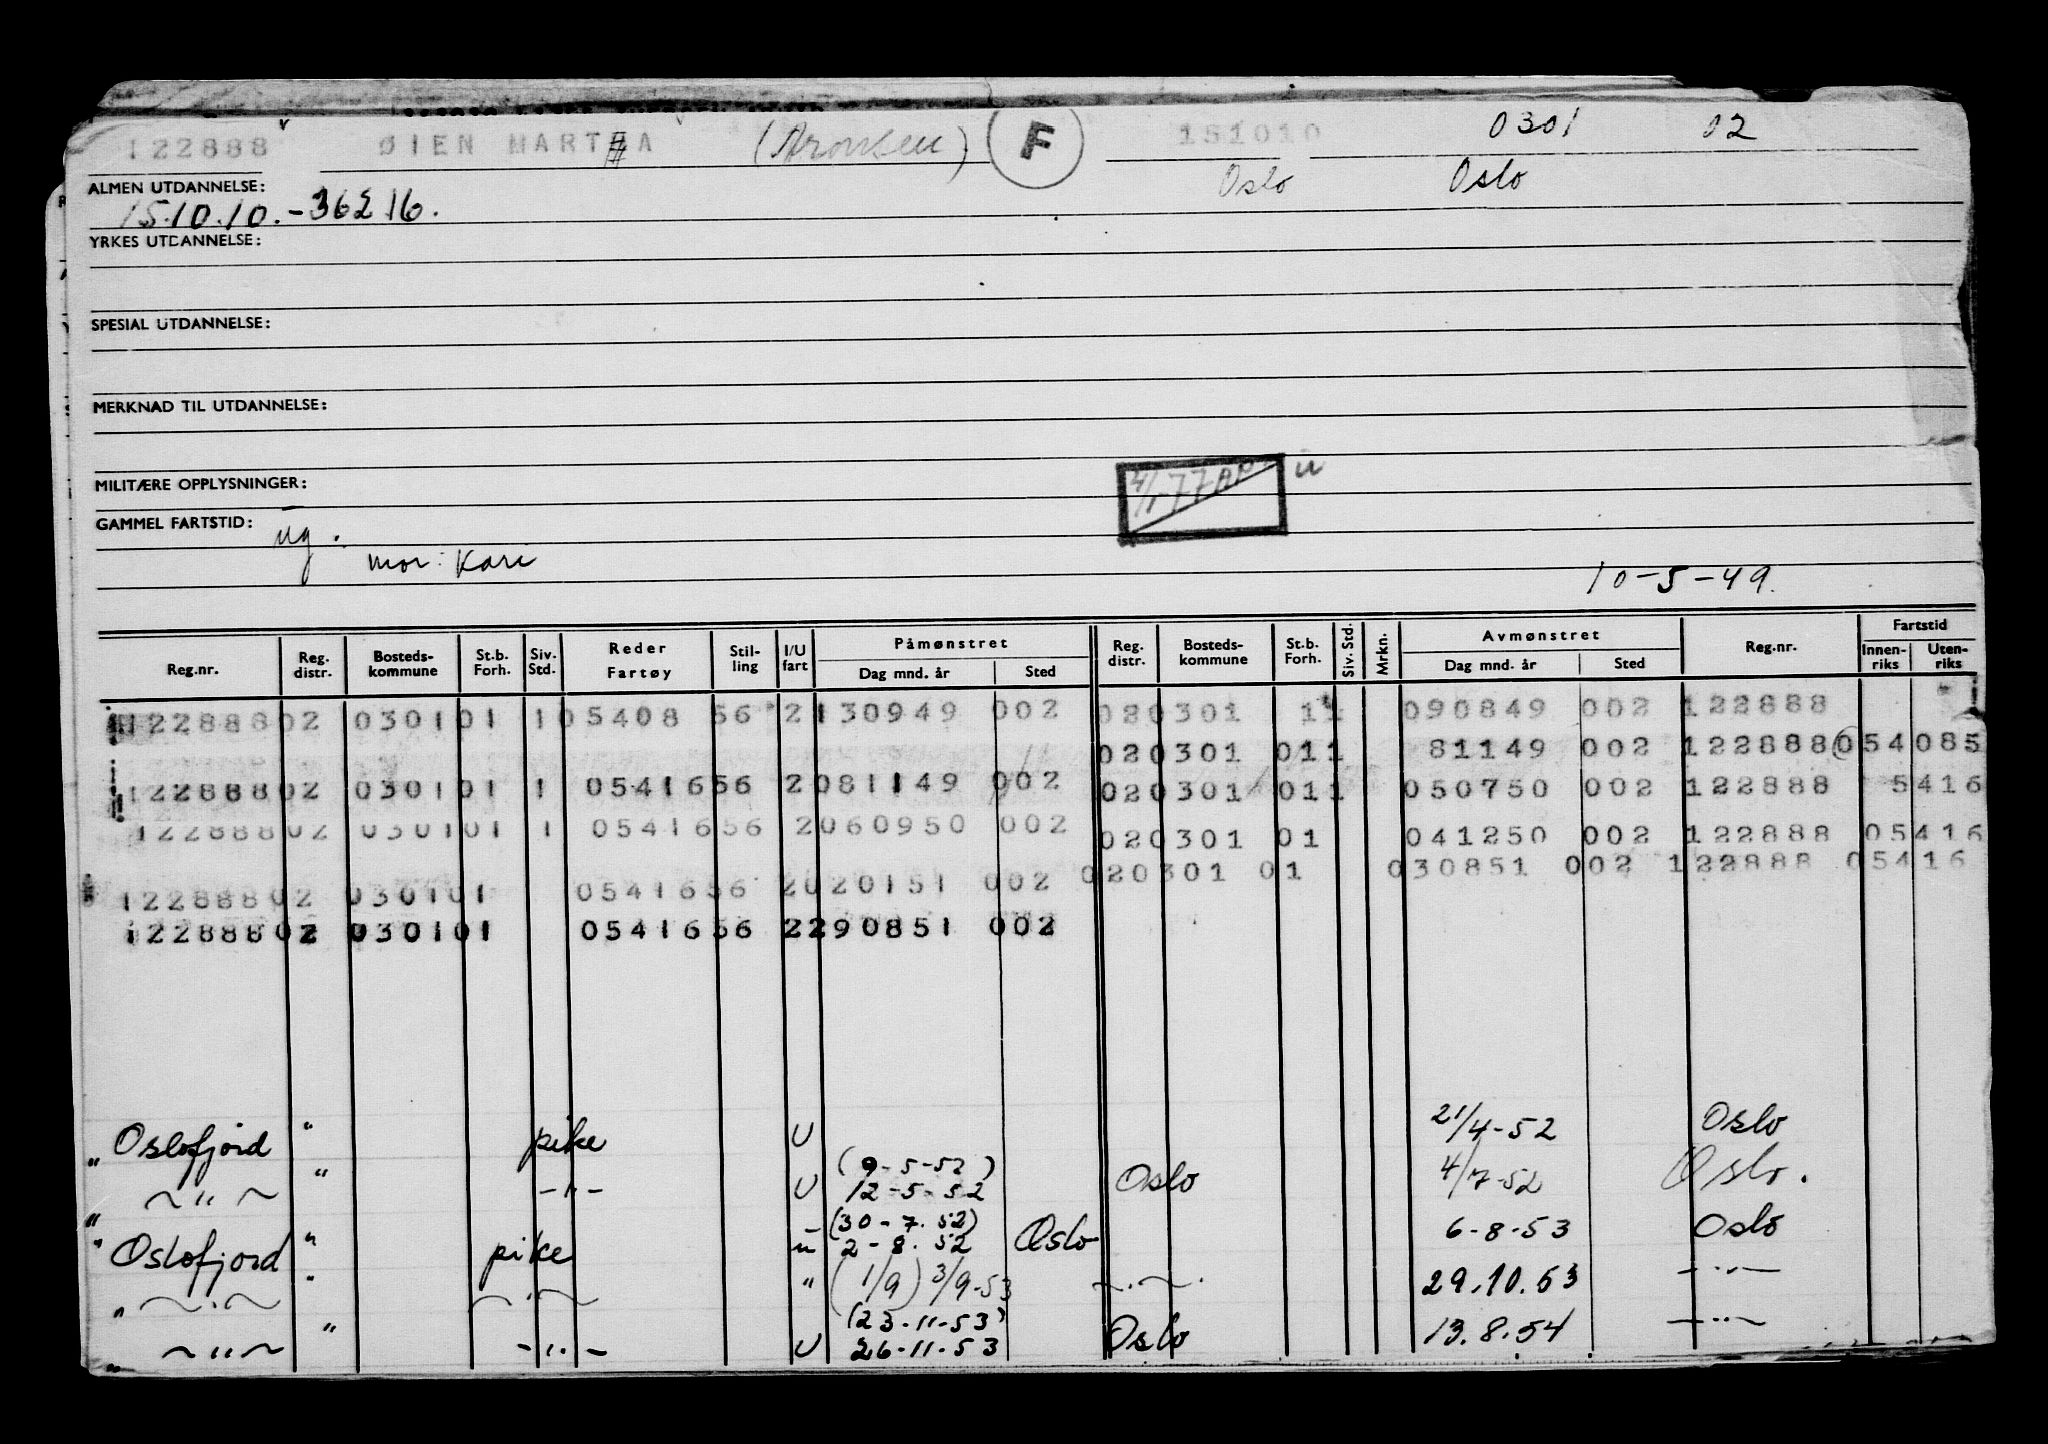 122888 ØIEN MARTHA (Aronsen) F 151010 0301 02
Oslo Oslo
ALMEN UTDANNELSE:
15.10.10.-36216.
YRKES UTDANNELSE:
SPESIAL UTDANNELSE:
MERKNAD TIL UTDANNELSE:
MILITÆRE OPPLYSNINGER:
GAMMEL FARTSTID: ug.
mor: Kari
10-5-49.
Reg.nr. Reg. distr. Bosteds-kommune St.b. Forh. Siv. Std. Reder Fartøy Stil-ling I/U fart Påmønstret Dag mnd. år Sted Reg. distr. Bosteds-kommune St.b. Forh. Siv. Std. Mrkn. Avmønstret Dag mnd. år Sted Reg.nr. Fartstid Innen-riks Uten-riks
12288802 030101 105408 56 2130949 002 020301 11 090849 002 122888
020301 011 81149 002 122888 054085
12288802 030101 1 0541656 2081149 002 020301 011 050750 002 122888 5416
12288802 030101 1 0541656 2060950 002 020301 01 041250 002 122888 05416
020301 01 030851 002 122888 05416
12288802 030101 0541656 2020151 002
12288802 030101 0541656 2290851 002
" Oslofjord " pike U 21/4-52 Oslo
(9-5-52)
" ~"~ " -"- U 12-5-52 Oslo 4/7-52 Oslo.
(30-7.52)
" Oslofjord " pike u 2-8.52 Oslo 6-8-53 Oslo
" ~.~ " ~.~ " (1/9) 3/9-53 ~.~. 29.10.53 -"-
(23-11-53)
" ~"~ " -"- U 26-11-53 Oslo 13.8.54 -"-